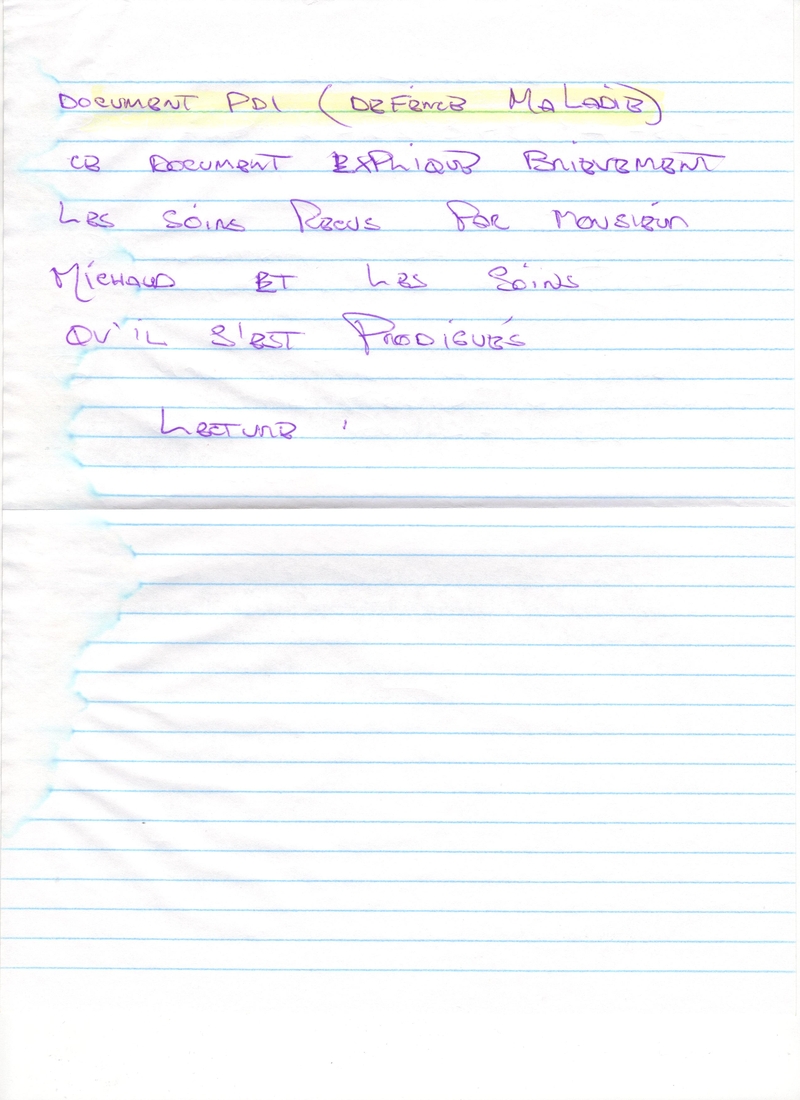 DOCUMENT PDI (DEFENCE MALADIE)
CE DOCUMENT EXPLIQUE BRIEVEMENT
LES SOINS RECUS PAR MONSIEUR
MICHAUD ET LES SOINS
QU'IL S'EST PRODIGUÉS
LECTURE :